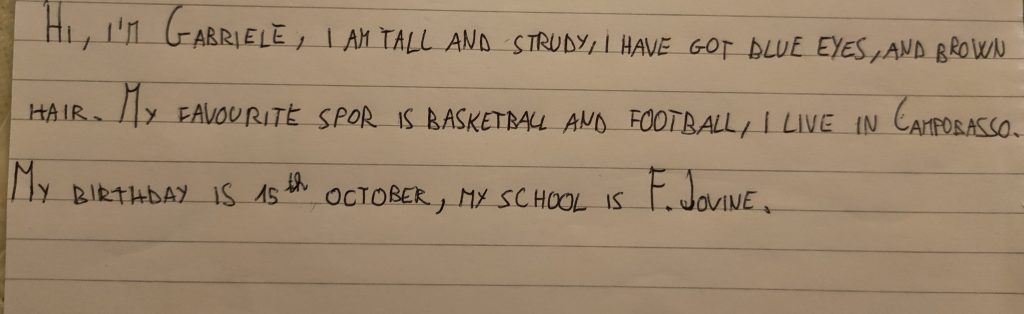 Hi, I'M GABRIELE, I AM TALL AND STRUDY, I HAVE GOT BLUE EYES, AND BROWN
HAIR. MY FAVOURITE SPOR IS BASKETBALL AND FOOTBALL, I LIVE IN CAMPOBASSO.
MY BIRTHDAY IS 15th OCTOBER, MY SCHOOL IS F. JOVINE.